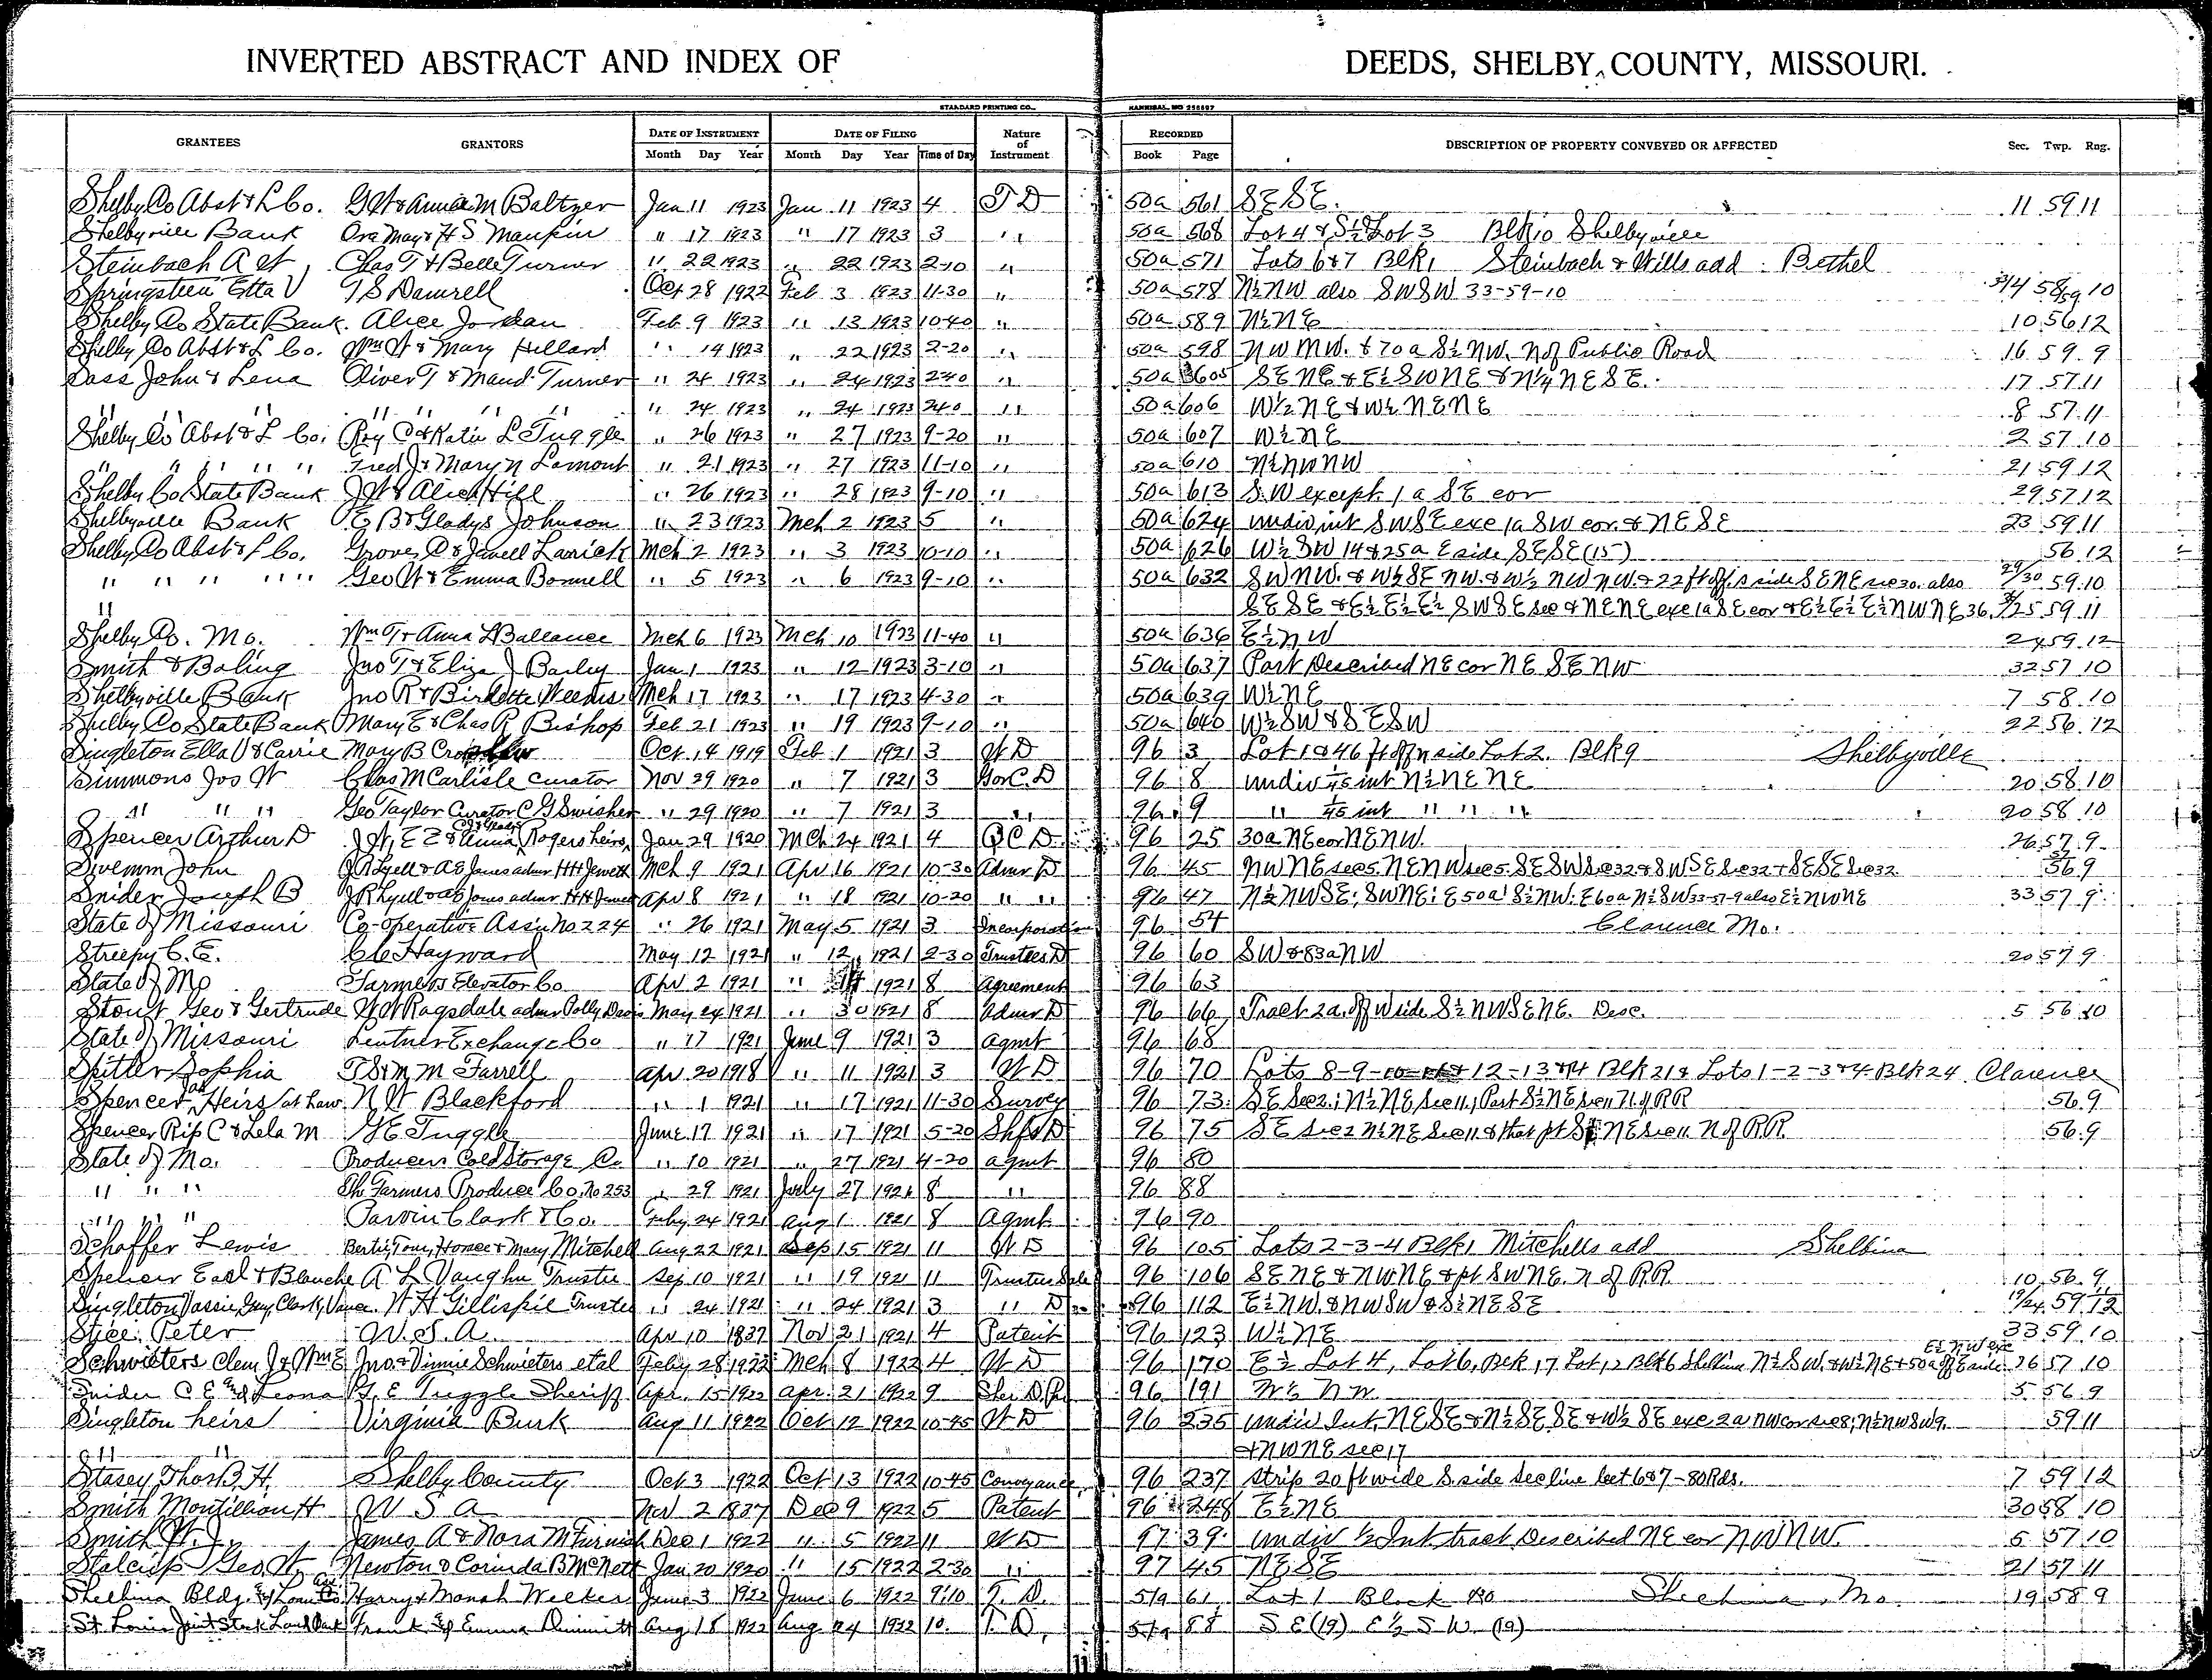 INVERTED ABSTRACT AND INDEX OF DEEDS, SHELBY COUNTY, MISSOURI.
STANDARD PRINTING CO., HANNIBAL, MO 256697
GRANTEES GRANTORS DATE OF INSTRUMENT Month Day Year DATE OF FILING Month Day Year Time of Day Nature of Instrument RECORDED Book Page DESCRIPTION OF PROPERTY CONVEYED OR AFFECTED Sec. Twp. Rng.
Shelby Co Abst & L Co. G W & Anna M Baltzer Jan 11 1923 Jan 11 1923 4 T D 50a 561 S E S E. 11 59 11
Shelbyville Bank Ora May & H S Maupin " 17 1923 " 17 1923 3 " 50a 568 Lot 4 & S½ Lot 3 Blk 10 Shelbyville
Steinbach A W Chas T & Belle Turner " 22 1923 " 22 1923 2-10 " 50a 571 Lots 6&7 Blk 1 Steinbach & Wills add Bethel
Springsteen Etta V T S Damrell Oct 28 1922 Feb 3 1923 11-30 " 50a 578 N½ NW also SW SW 33-59-10 58/59 10
Shelby Co State Bank. Alice Jordan Feb 9 1923 " 13 1923 10-40 " 50a 589 N½ NE 10 56 12
Shelby Co Abst & L Co. Wm H & Mary Hillard " 14 1923 " 22 1923 2-20 " 50a 598 NW NW. & 70a S½ NW. N of Public Road 16 59 9
Sass John & Lena Oliver T & Maud Turner " 24 1923 " 24 1923 2-40 " 50a 605 SE NE & E½ SW NE & N¼ NE SE. 17 57 11
" " " " " " " " 24 1923 " 24 1923 2-40 " 50a 606 W½ NE & W½ NE NE 8 57 11
Shelby Co Abst & L Co. Roy C & Katie L Tuggle " 26 1923 " 27 1923 9-20 " 50a 607 W½ NE 2 57 10
" " " " " Fred J & Mary N Lamont " 21 1923 " 27 1923 11-10 " 50a 610 N½ NW NW 21 59 12
Shelby Co State Bank J W & Alice Hill " 26 1923 " 28 1923 9-10 " 50a 613 S.W except 1 a SE cor 29 57 12
Shelbyville Bank E B & Gladys Johnson " 23 1923 Mch 2 1923 5 " 50a 624 undiv int SW SE exc 1a SW cor. & NE SE 23 59 11
Shelby Co Abst & L Co. Grover C & Larrick Mch 2 1923 " 3 1923 10-10 " 50a 626 W½ SW 14 & 25a E side SE SE (15) 56 12
" " " " " Geo W & Emma Bonnell " 5 1923 " 6 1923 9-10 " 50a 632 SW NW. & W½ SE NW. & W½ NW NW. & 22 ft off S side SE NE sec 30. also 29/30 59 10
" SE SE & E½ E½ E½ SW SE sec & NE NE exc 1a SE cor & E½ E½ E½ NW NE 36 25 59 11
Shelby Co. Mo. Wm T & Anna L Ballance Mch 6 1923 Mch 10 1923 11-40 " 50a 636 E½ NW 24 59 12
Smith & Boling Jno T & Eliza J Barley Jan 1 1923 " 12 1923 3-10 " 50a 637 Part Described NE cor NE SE NW 32 57 10
Shelbyville Bank Jno R & Birdette Weems Mch 17 1923 " 17 1923 4-30 " 50a 639 W½ NE 7 58 10
Shelby Co State Bank Mary E & Chas R Bishop Feb 21 1923 " 19 1923 9-10 " 50a 640 W½ SW & SE SW 22 56 12
Singleton Ella V & Carrie Mary B Oct 14 1919 Feb 1 1921 3 W D 96 3 Lot 1 & 46 ft off N side Lot 2. Blk 9 Shelbyville
Simmons Jos W Chas M Carlisle curator Nov 29 1920 " 7 1921 3 Gor C. D 96 8 undiv 1/45 int N½ NE NE 20 58 10
" " " Geo Taylor Curator C G Swisher " 29 1920 " 7 1921 3 " 96 9 " 1/45 int " " " 20 58 10
Spencer Arthur D J W, E E & Anna Rogers heirs Jan 29 1920 Mch 24 1921 4 Q C D 96 25 30a NE cor NE NW. 26 57 9
Sivemm John J R Lyell & A G Jones admr H H Jewett Mch 9 1921 Apr 16 1921 10-30 Admr D 96 45 NW NE sec 5. NE NW sec 5. SE SW Sec 32 & SW SE Sec 32 & SE SE Sec 32 57/56 9
Snider Joseph B J R Lyell & A G Jones admr H H Jewett Apr 8 1921 " 18 1921 10-20 " " 96 47 N½ NW SE; SW NE; E 50a S½ NW; E 60a N½ SW 33-57-9 also E½ NW NE 33 57 9
State of Missouri Co-operative Ass'n No 224 " 26 1921 May 5 1921 3 Incorporation 96 54 Clarence Mo.
Streepy C. E. C C Hayward May 12 1921 " 12 1921 2-30 Trustees D 96 60 SW & 83a NW 20 57 9
State of Mo Farmers Elevator Co Apr 2 1921 " 14 1921 8 Agreement 96 63
Stout Geo & Gertrude W W Ragsdale admr Polly Davis May 24 1921 " 30 1921 8 Admr D 96 66 Tract 2a. off W side S½ NW SE NE. Desc. 5 56 10
State of Missouri Lentner Exchange Co " 17 1921 June 9 1921 3 Agmt 96 68
Spitler Sophia T S & M M Farrell Apr 20 1918 " 11 1921 3 W D 96 70 Lots 8-9- 12-13 & 14 Blk 21 & Lots 1-2-3 & 4 Blk 24 Clarence
Spencer Heirs at Law N W Blackford " 1 1921 " 17 1921 11-30 Survey 96 73 SE Sec 2; N½ NE Sec 11; Part S½ NE Sec 11 N of RR 56 9
Spencer Rip C & Lela M G E Tuggle June 17 1921 " 17 1921 5-20 Shfs D 96 75 SE Sec 2 N½ NE Sec 11 & that pt S½ NE Sec 11 N of RR. 56 9
State of Mo. Producers Cold Storage Co " 10 1921 " 27 1921 4-20 Agmt 96 80
" " " The Farmers Produce Co. No 253 " 29 1921 July 27 1921 8 " 96 88
" " " Parvin Clark & Co. July 24 1921 Aug 1 1921 8 Agmt 96 90
Schaffer Lewis Bertie, Tom, Homer & Mary Mitchell Aug 22 1921 Sep 15 1921 11 W D 96 105 Lots 2-3-4 Blk 1 Mitchells add Shelbina
Spencer Earl & Blanche A L Vaughn Trustee Sep 10 1921 " 19 1921 11 Trustee Sale 96 106 SE NE & NW NE & pt SW NE. N of RR 10 56 9
Singleton Vassie Guy, Clark, Vance. W H Gillispie Trustee " 24 1921 " 24 1921 3 " D 96 112 E½ NW. & NW SW & S½ NE SE 19/24 59 11/12
Stice Peter U. S. A. Apr 10 1837 Nov 21 1921 4 Patent 96 123 W½ NE 33 59 10
Schwieters Clem J & Wm E Jno. & Vinnie Schwieters et al Feby 28 1922 Mch 8 1922 4 W D 96 170 E½ Lot 4, Lot 6, Blk 17 Lot 12 Blk 6 Shelbina N½ SW & W½ NE + 50a off E side E½ NW exc 26 57 10
Snider C E and Leona H. E Tuggle Sheriff Apr. 15 1922 Apr. 21 1922 9 Sher D 96 191 W½ NW 5 56 9
Singleton heirs Virginia Burk Aug 11 1922 Oct 12 1922 10-45 W D 96 235 undiv Int, NE SE & N½ SE SE & W½ SE exc 2a NW cor sec 8; N½ NW SW 9. 59 11
" " & NW NE sec 17
Stasey Thos B. H. Shelby County Oct 3 1922 Oct 13 1922 10-45 Conveyance 96 237 strip 20 ft wide S. side Sec line bet 6&7 - 80 Rds. 7 59 12
Smith Montillion H U S A Nov 2 1837 Dec 9 1922 5 Patent 96 248 E½ NE 30 58 10
Smith W. J. James A & Nora McFurnish Dec 1 1922 " 5 1922 11 W D 97 39 undiv ½ Int tract Described NE cor NW NW. 5 57 10
Stalcup Geo W. Newton & Corinda B McNett Jan 20 1920 " 15 1922 2-30 " 97 45 NE SE 21 57 11
Shelbina Bldg. & Loan Harry & Monah Weekes June 3 1922 June 6 1922 9:10 T. D. 51a 61 Lot 1 Block Shelbina, Mo. 19 58 9
St Louis Joint Stock Land Bank Frank & Emma Dimmitt Aug 18 1922 Aug 24 1922 10. T. D. 51a 88 S E (19) E½ S W. (19)